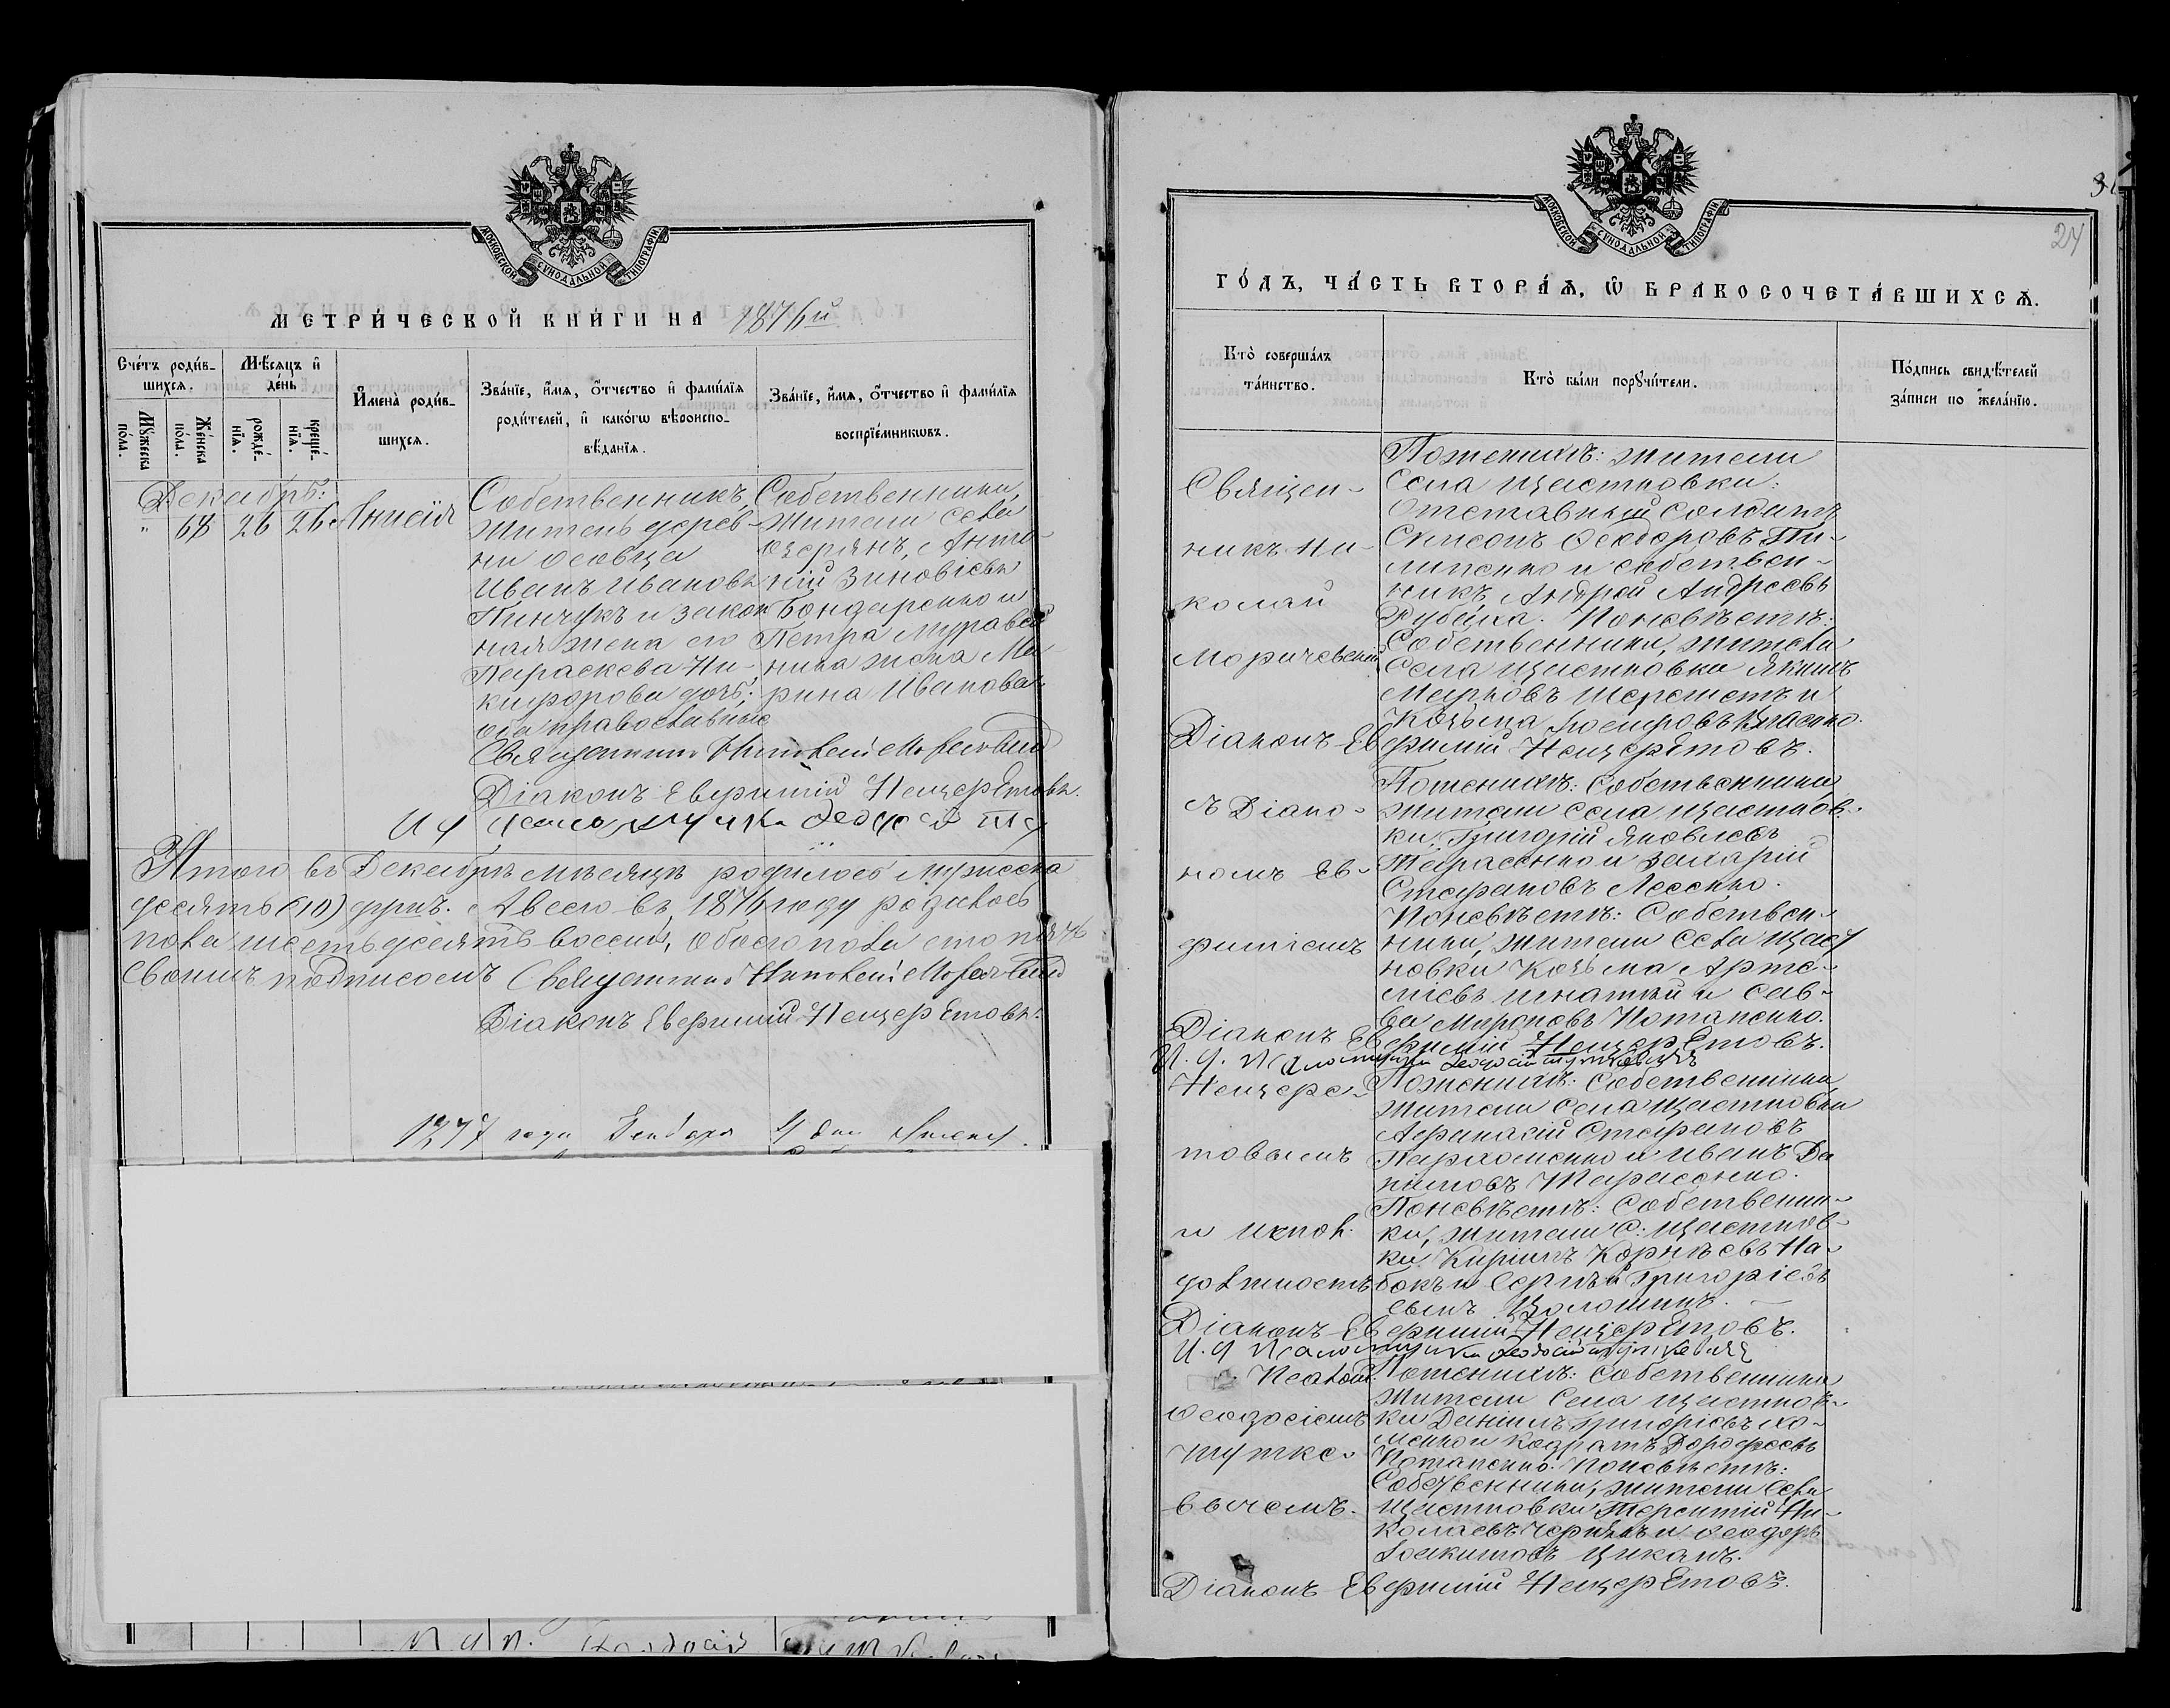 МОСКОВСКОЙ СѴНОДАЛЬНОЙ ТИПОГРАФІИ
МЕТРИ́ЧЕСКОЙ КНИ́ГИ НА 1876й
Сче́тъ роди́в-
шихсѧ.
Мѣ́сѧцъ и҆
де́нь
Мꙋ́жеска
по́ла.
Же́нска
по́ла.
рожде́-
нїѧ.
креще́-
нїѧ.
И҆мена̀ роди́в-
шихсѧ.
Зва́нїе, и҆́мѧ, ѻ҆́тчество и҆ фамі́лїѧ
роди́телей, и҆ како́гѡ вѣроиспо-
вѣ́данїѧ.
Зва́нїе, и҆́мѧ, ѻ҆́тчество и҆ фамі́лїѧ
воспрїе́мникѡвъ.
Декабрь:
" 68 26 26 Анисія
Собственникъ,
житель дерев-
ни Осовца
Иванъ Ивановъ
Пинчукъ и закон
ная жена его
Параскева Ни-
кифорова дочь;
оба православные
Собственники,
жители села
Озерянъ, Анто-
ній Зиновіевъ
Бондаренко и
Петра Муравей
ника жена Ма-
рина Иванова.
Священникъ Николай
Діаконъ Евфимій Нещеретовъ.
Итого въ Декабрѣ мѣсяцѣ родилось мужеска
десять (10) душъ. А всего въ 1876 году родилось
пола шестьдесятъ восемь, обоего пола сто
своимъ подписомъ Священникъ Николай
Діаконъ Евфимій Нещеретовъ.
1877 года Января 4 дня
МОСКОВСКОЙ СѴНОДАЛЬНОЙ ТИПОГРАФІИ
24
ГО́ДЪ, ЧА́СТЬ ВТОРА́Ѧ, Ѡ҆ БРАКОСОЧЕТА́ВШИХСѦ.
Кто̀ соверша́лъ
та́инство.
Кто̀ бы́ли порꙋчи́тели.
По́дпись свидѣ́телей
за́писи по жела́нїю.
Священ-
никъ Ни-
колай
Моричевскій
Поженихѣ: жители
Села Щастновки:
Отставный солдатъ
Симеонъ Ѳеодоровъ Пи-
липенко и собствен-
никъ Андрей Андреевъ
Рубанка. Поневѣстѣ:
Собственники, жители
Села Щастновки Якимъ
Марковъ Шереметъ и
Козьма
Діаконъ Евфимій Нещеретовъ.
съ Діако-
номъ Ев-
фиміемъ
Поженихѣ: Собственники
жители Села Щастнов-
ки, Григорій Яковлевъ
Тарасенко и Захарій
Стефановъ Лесенко.
Поневѣстѣ: Собствен-
ники, жители Села Щаст
новки Козьма Арте-
міевъ Игнатій и Сав-
ва Мироновъ Потапенко.
Діаконъ Евфимій Нещеретовъ.
И. д. Псаломщика Ѳеодосій Шуткевичъ
Нещере-
товымъ
и испол.
должность
Поженихѣ: Собственники
жители Села Щастновки
Афанасій Стефановъ
Пархоменко и Иванъ Да
ніиловъ Тарасенко.
Поневѣстѣ: Собственни-
ки, жители С. Щастнов-
ки Кириллъ Корнѣевъ На-
бокъ и Сергѣй Григоріевъ
сынъ Волошинъ.
Діаконъ Евфимій Нещеретовъ.
И. д. Псаломщика Ѳеодосій Шуткевичъ
Псалом.
Ѳеодосіемъ
Шутке-
вичемъ.
Поженихѣ: Собственники
жители Села Щастнов-
ки Даніилъ Григоріевъ Хо-
менко и Кодратъ Дорофеевъ
Потапенко. Поневѣстѣ:
Собственники, жители Села
Щастновки Терентій Ни-
колаевъ Чернякъ и Ѳеодоръ
Іоакимовъ Циканъ.
Діаконъ Евфимій Нещеретовъ.